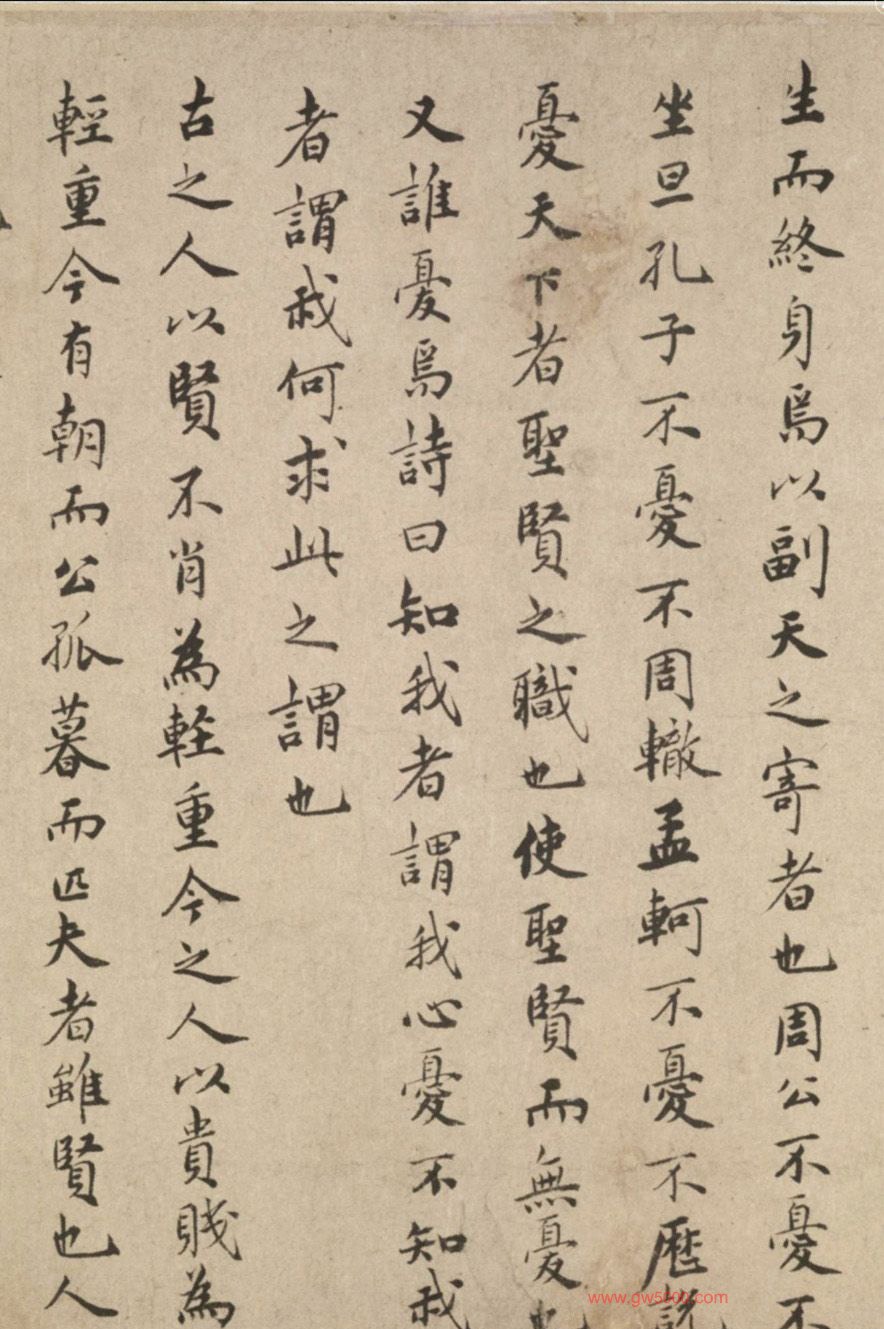 生而終身焉以副天之寄者也周公不憂不
坐旦孔子不憂不周轍孟軻不憂不歷說
憂天下者聖賢之職也使聖賢而無憂也
又誰憂焉詩曰知我者謂我心憂不知我
者謂我何求此之謂也
古之人以賢不肖為輊重今之人以貴賤為
輕重今有朝而公孤暮而匹夫者雖賢也人
www.gw5000.com